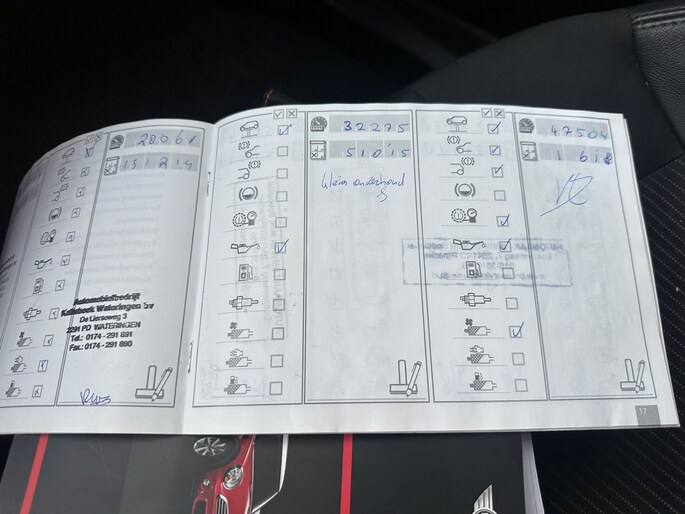 28061
151214
Automobielbedrijf
Kallebeek Wateringen bv
De Lierseweg 3
2291 PD WATERINGEN
Tel.: 0174 - 291 691
Fax.: 0174 - 291 690
32275
51015
klein onderhoud
47504
1 618
17